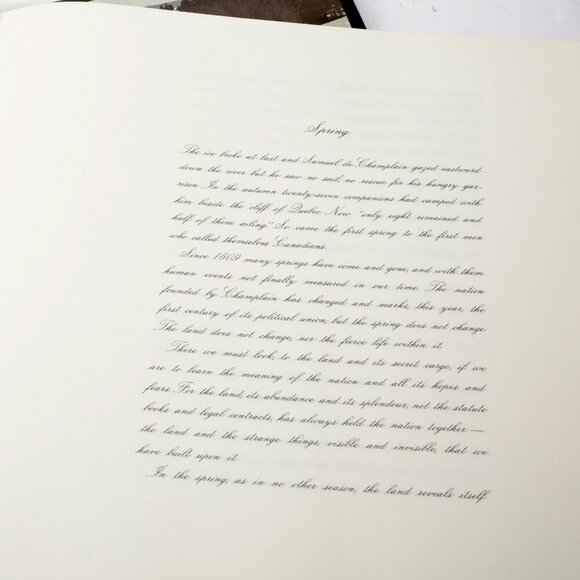 Spring
The ice broke at last and Samuel de Champlain gazed eastward
down the river but he saw no sail, no rescue for his hungry gar-
rison. In the autumn twenty-seven companions had camped with
him beside the cliff of Quebec. Now "only eight remained and
half of them ailing." So came the first spring to the first men
who called themselves Canadians.
Since 1609 many springs have come and gone, and with them
human events not finally measured in our time. The nation
founded by Champlain has changed and marks, this year, the
first century of its political union, but the spring does not change.
The land does not change, nor the fierce life within it.
There we must look, to the land and its secret cargo, if we
are to learn the meaning of the nation and all its hopes and
fears. For the land, its abundance and its splendour, not the statute
books and legal contracts, has always held the nation together —
the land and the strange things, visible and invisible, that we
have built upon it.
In the spring, as in no other season, the land reveals itself